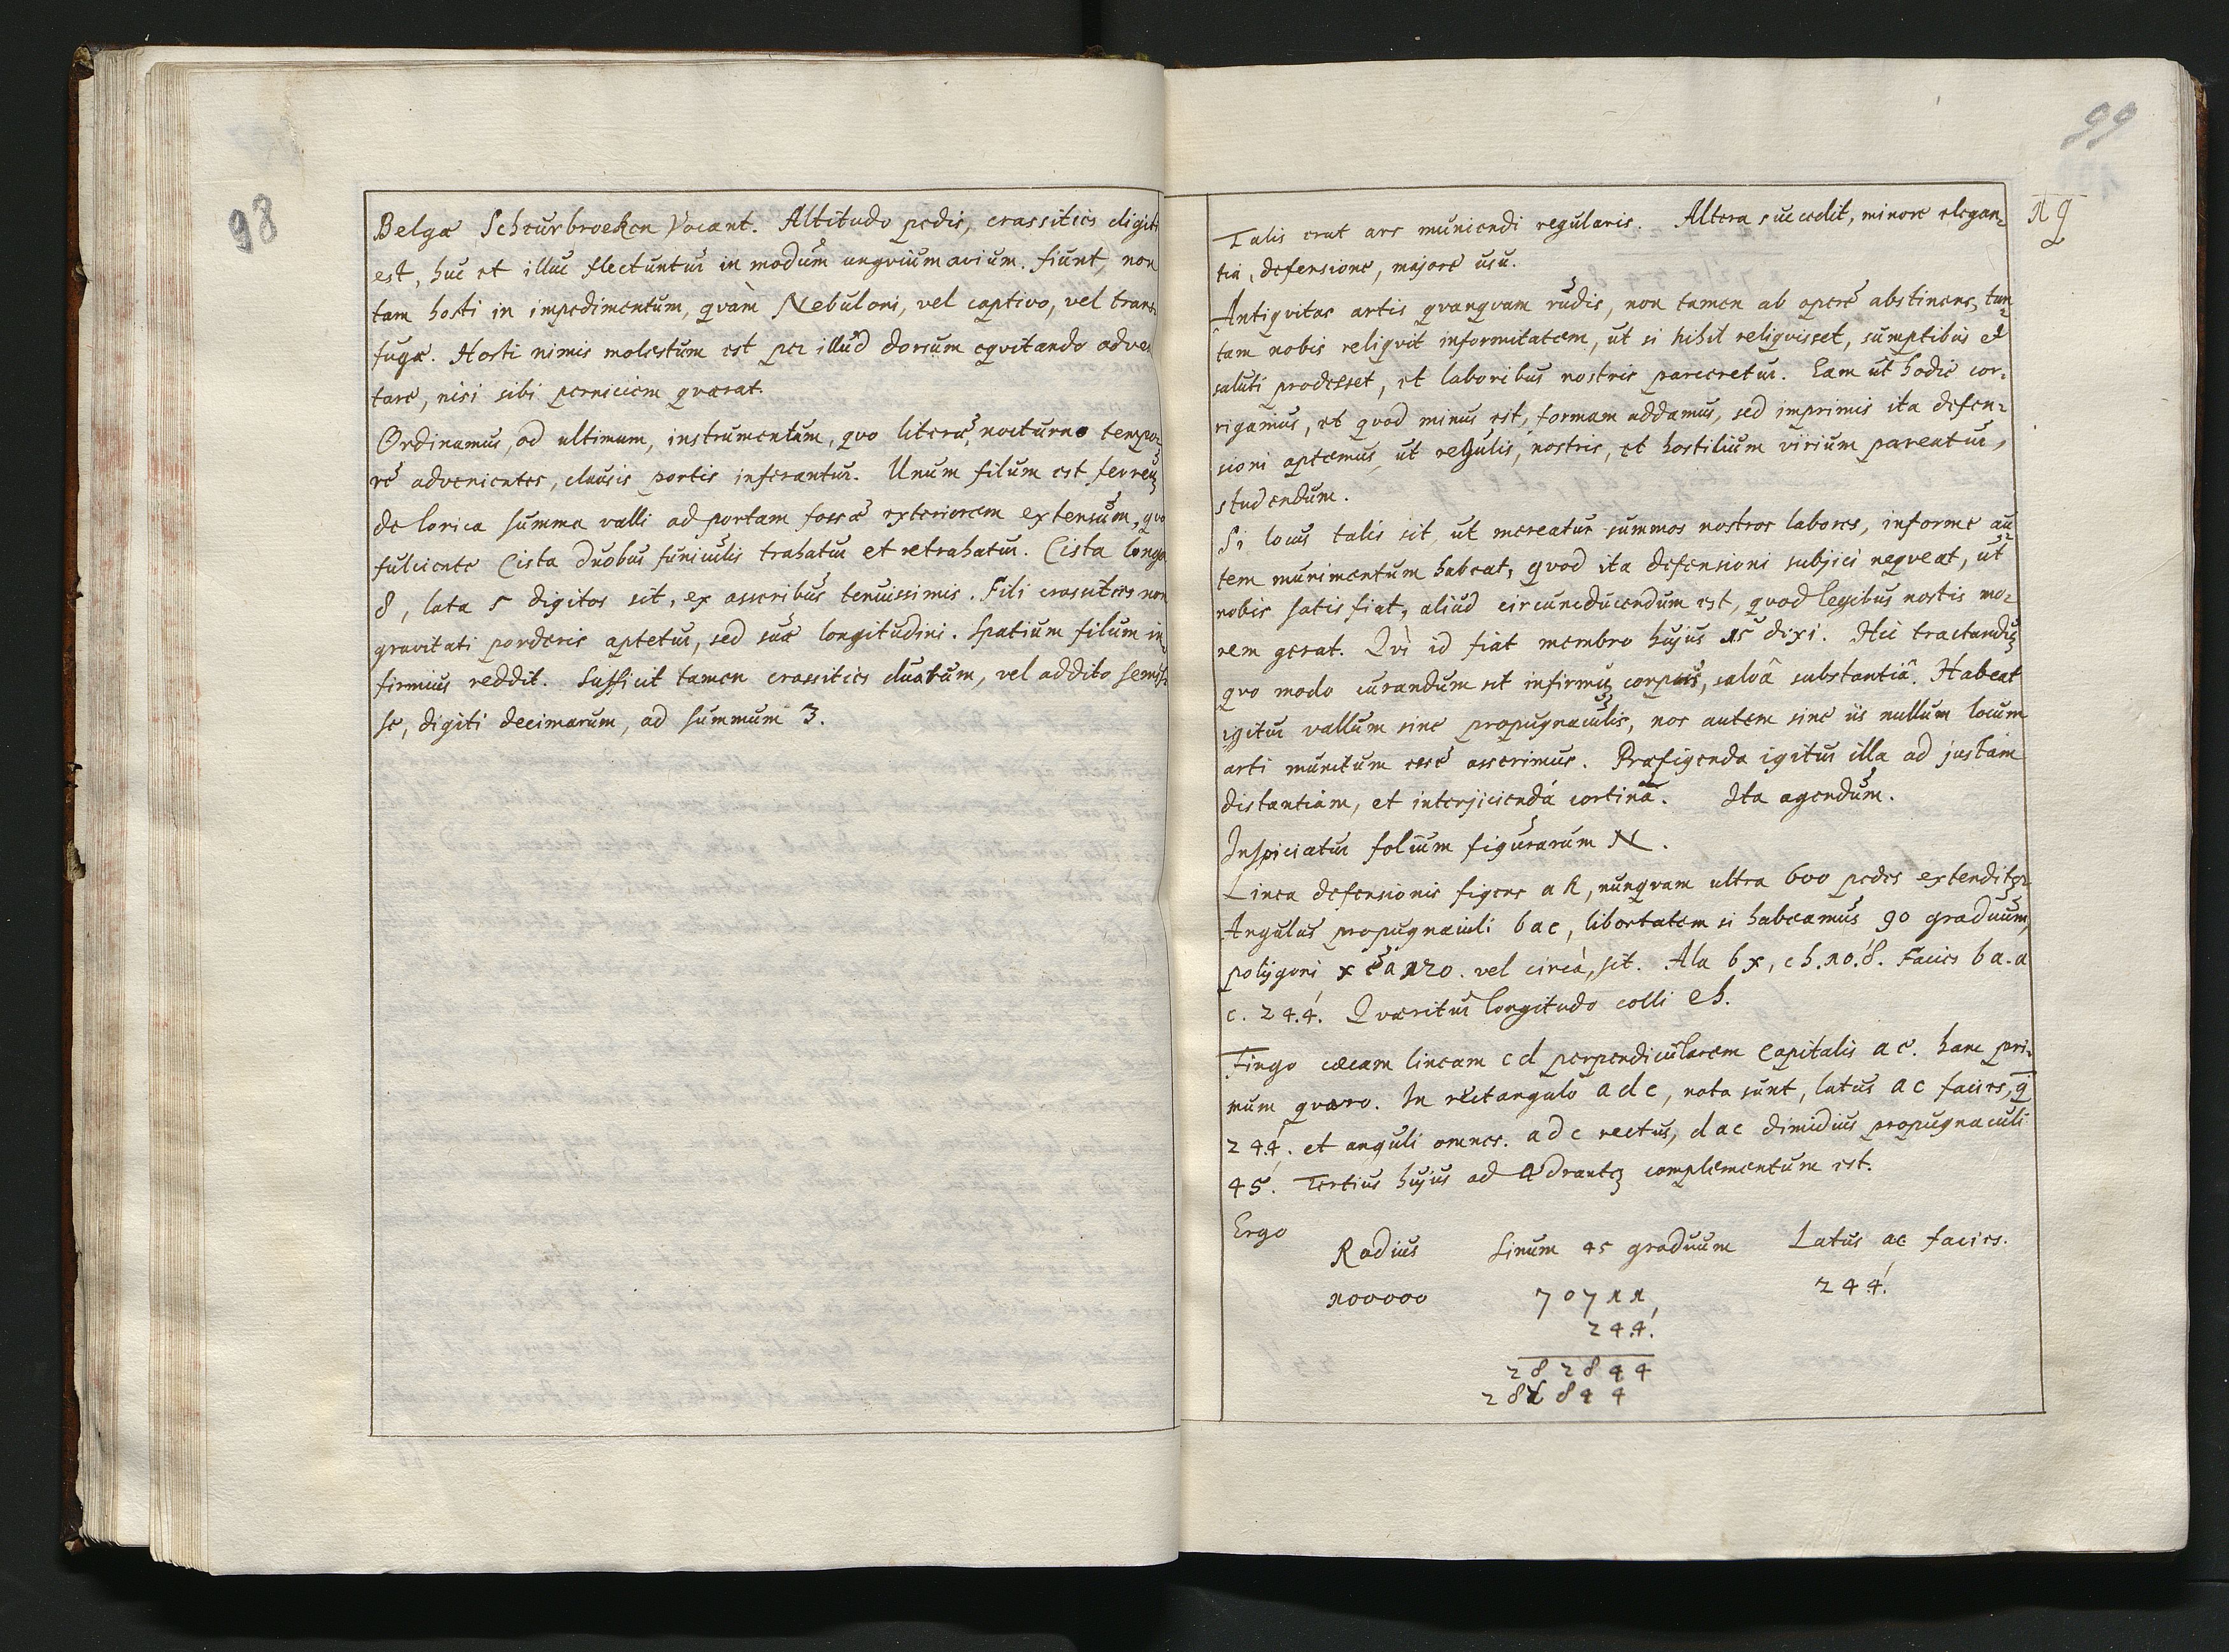 98
Belgæ Scheurbroeken Vocant. Altitudo pedis, crassities digiti
est, huc et illuc flectuntur in modum ungvium avium. fiunt, non
tam hosti in impedimentum, qvàm Nebuloni, vel captivo, vel trans-
fugæ. Hosti nimis molestum est per illud dorsum eqvitando adven
tare, nisi sibi perniciem qværat.
Ordinamus, ad ultimum, instrumentum, qvo literæ, nocturno tempo-
re advenientes, clausis portis inferantur. Unum filum est ferreuȝ
de lorica summa valli ad portam fossæ exteriorem extensum, qvo
fulciente Cista duobus funiculis trahatur et retrahatur. Cista longa
8, lata 5 digitos sit, ex asseribus tenuissimis. Fili crassities non
gravitati ponderis aptetur, sed suæ longitudini. Spatium filum in-
firmius reddit. Sufficit tamen crassities duarum, vel addito semis-
se, digiti decimarum, ad summum 3.
99
19
Talis erat ars muniendi regularis. Altera succedit, minore elegan-
tia, defensione, majore usu.
Antiqvitas artis qvanqvam rudis, non tamen ab opere abstinens, tan-
tam nobis reliqvit informitatem, ut si nihil reliqvisset, sumptibus et
saluti prodesset, et laboribus nostris parceretur. Eam ut hodie cor-
rigamus, et qvod minus est, formam addamus, sed imprimis ita defen-
sioni aptemus, ut regulis, nostris, et hostilium virium pareatur,
studendum.
Si locus talis sit, ut mereatur summos nostros labores, informe au-
tem munimentum habeat, qvod ita defensioni subjici neqveat, ut
nobis satis fiat, aliud circumducendum est, qvod legibus nostris mo-
rem gerat. Qvì id fiat membro hujus 15 dixi. Hic tractanduȝ
qvo modo curandum sit infirmuȝ corpus, salvâ substantiâ. Habeat
igitur vallum sine propugnaculis, nos autem sine iis nullum locum
arti munitum esse asserimus. Præfigenda igitur illa ad justam
distantiam, et interjicienda cortina. Ita agendum.
Inspiciatur folium figurarum N.
Linea defensionis figens a R, nunqvam ultra 600 pedes extenditor
Angulus propugnaculi b a c, libertatem si habeamus 90 graduum,
polÿgoni x e a 120. vel circà, sit. Ala b x, c h. 10.8. Facies b a. a
c. 24.4. Qværitur longitudo colli e h.
Fingo cæcam lineam c d perpendicularem Capitalis a e. hanc pri-
mum qværo. In rectangulo a d c, nota sunt, latus a c facies, q̄
24.4. et anguli omnes. a d c rectus, d a c dimidius propugnaculi
45. Tertius hujus ad Qdranteȝ complementum est.
Ergo
Radius Sinum 45 graduum Latus ac facies.
100000 70711 24.4.
24.4.
282844
282844